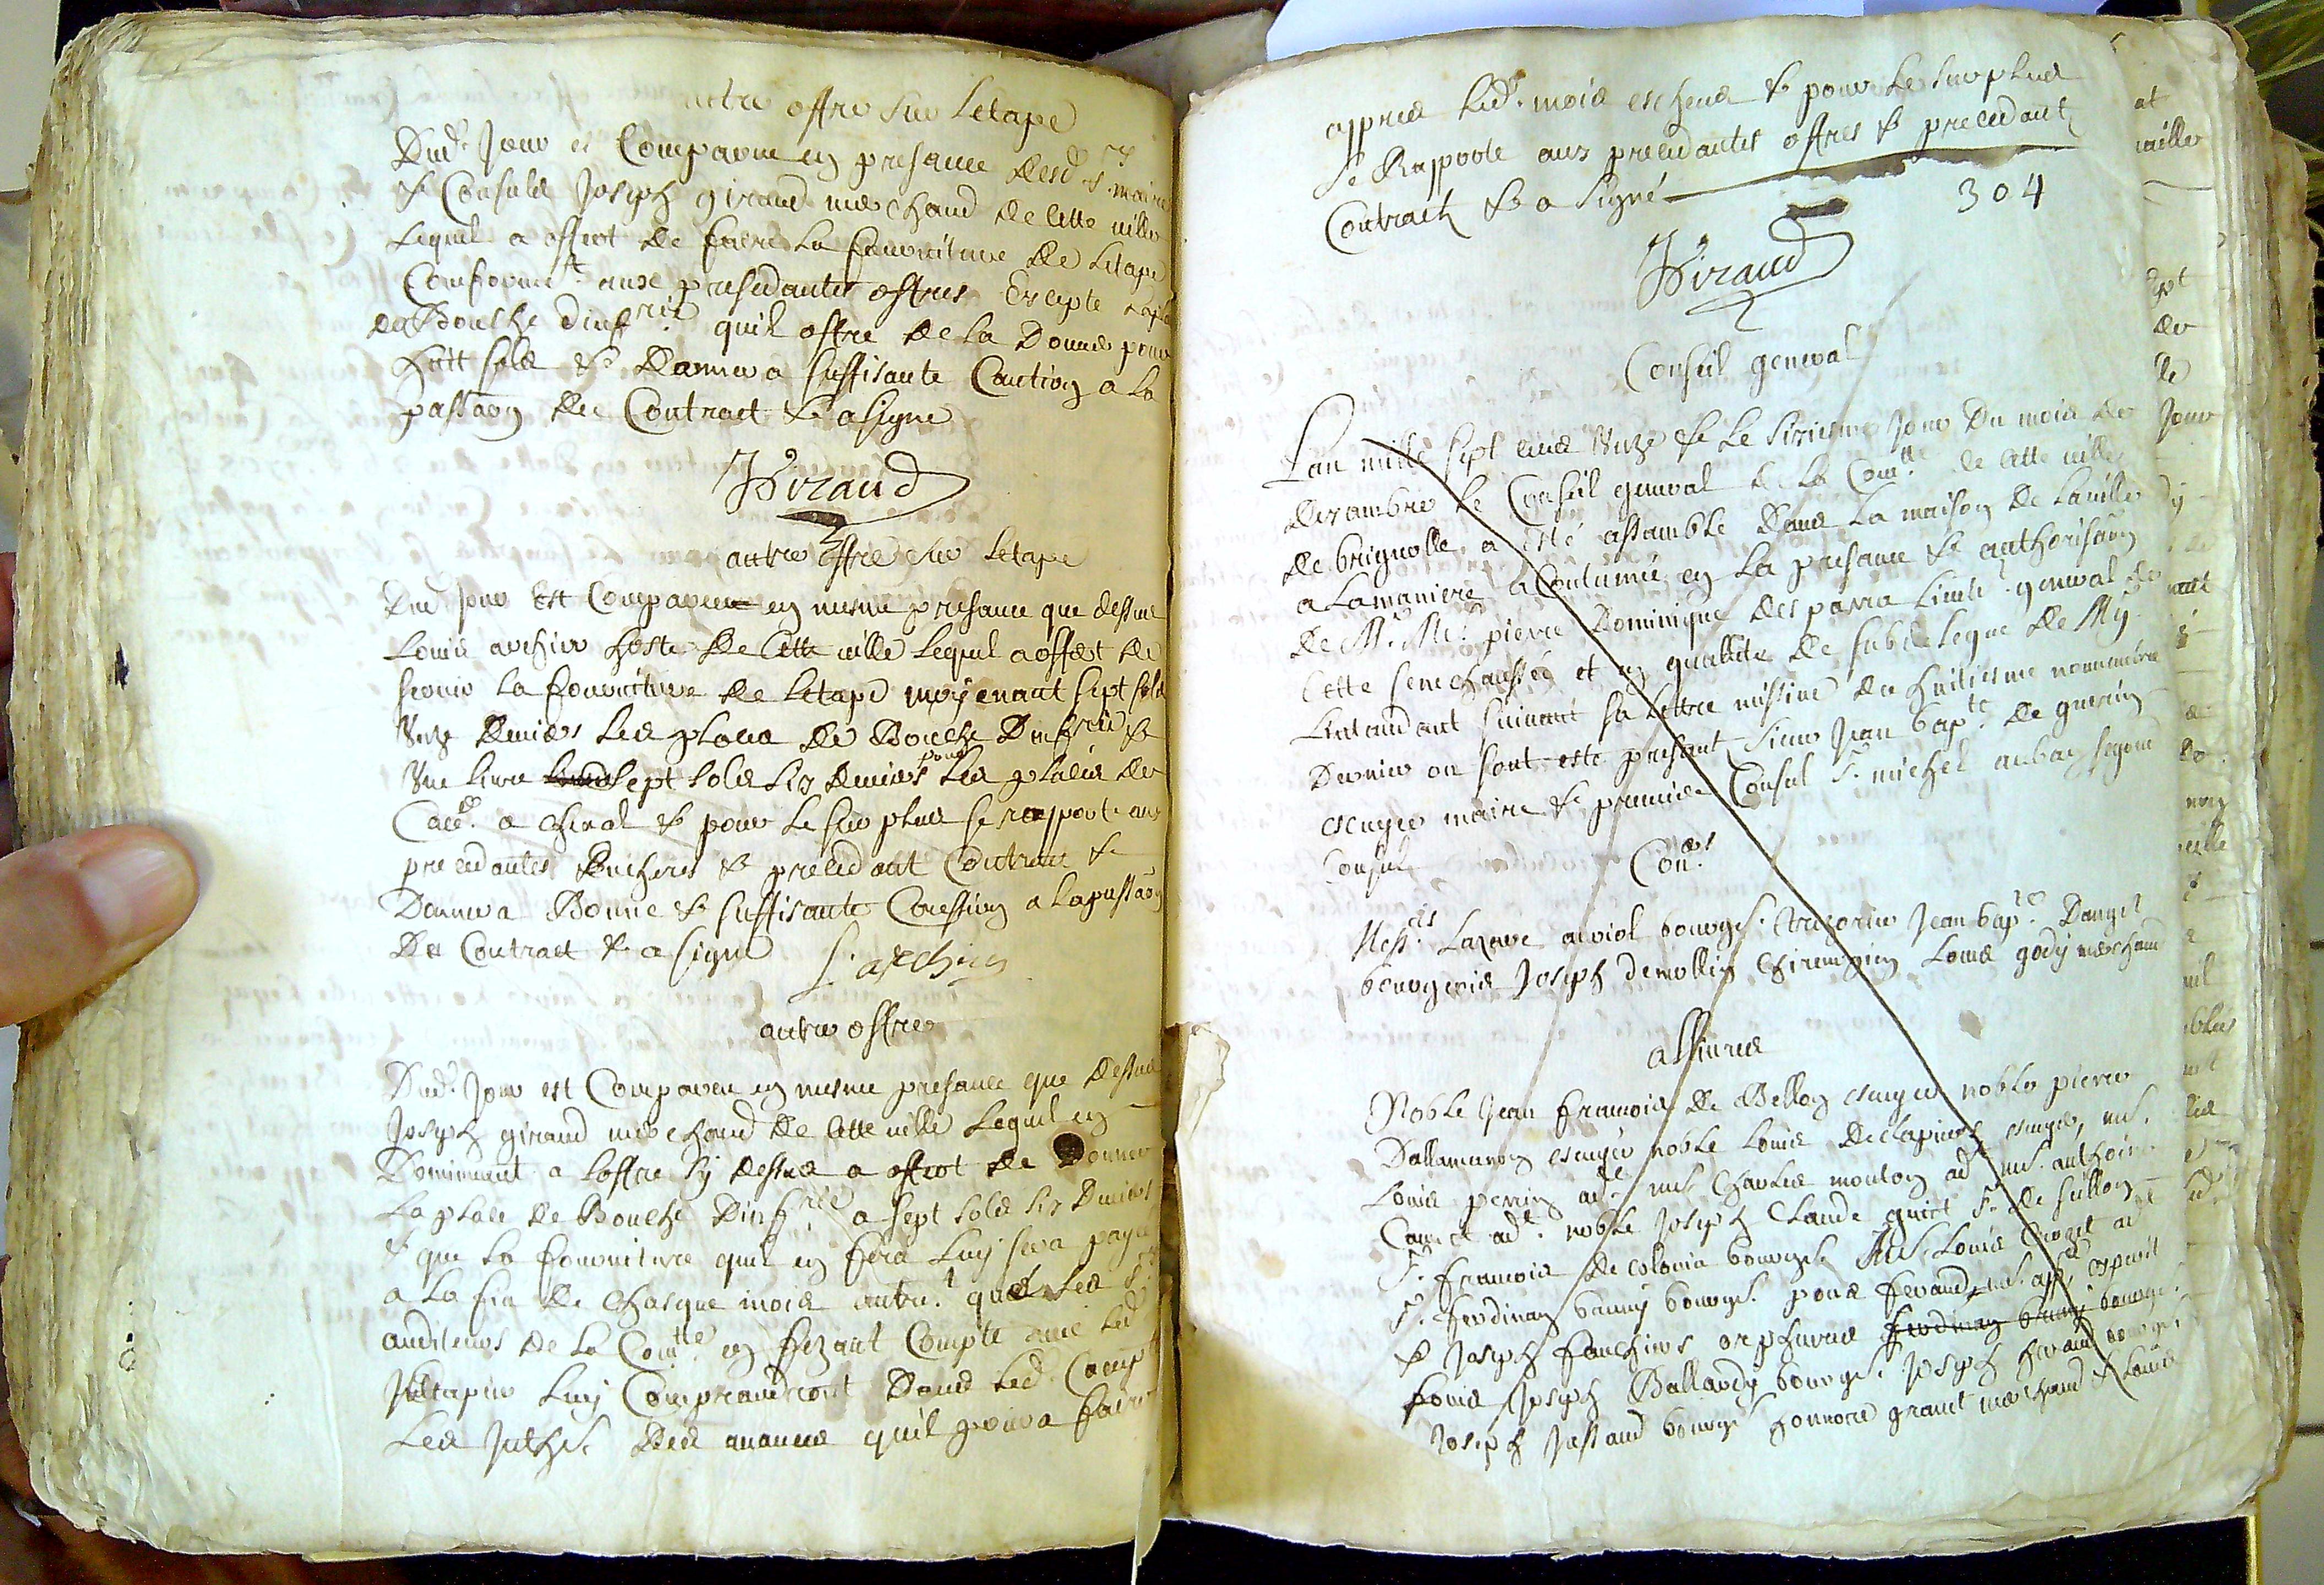 autre offre sur letape
Dud. Jour est Comparu en presance desd. srs. maire
& Consuls Joseph giraud marchand de cette ville
Lequel a offert de faire la fourniture de letape
Conformet. aux presedantes offres Excepte la place
de Bouche dinfrie. quil offre de la Donner pour
huit sols & Donnera suffisante Caution a la
passaon du Contract & a signe
JGiraud
autre offre sur letape
Dud. jour est Comparu en mesme presance que dessus
Louis archier hoste de Cette ville Lequel a offert de
fournir la fourniture de letape moyenant sept sols
Unze Deniers les places de Bouche Dinfrie &
Une livre sept sols six deniers pour les places de
Cave. a cheval & pour le surplus se rapporte aux
precedantes Encheres & precedant Contract &
Donnera Bonne & suffisante Caution a la passaon
Du Contract & a signe L. archier
autre offre
Dud. Jour est Comparu en mesme presance que dessus
Joseph giraud marchand de cette ville Lequel en
Diminuant a loffre sy dessus a offert de Donner
La place de Bouche Dinfrie. a sept sols six Deniers
& que la fourniture quil en fera Luy sera payee
a la fin de chasque mois autret. que les srs.
auditeurs de la Comtte. en fezant Compte avec led.
Jestapier Luy Comprandront Dans led. Compte
Les Inthes. Des avances quil pourra faire
appres led. mois escheus & pour le surplus
se Rapporte aux precedantes offres & precedant
Contract & a signé
304
JGiraud
Conseil general
Lan mille sept cens Unze & le sixiesme jour du mois de
dexambre le Conseil general de la Comtte. de Cette ville
de brignolle a esté assamble dans la maison de laville
a la maniere accoutumée en la presance & authorisaon
de Mr. Me. pierre Dominique desparra Lieutt. general de
Cette senechaussée et en quallite de subdelegue de Mgr.
Lintandant suivant sa lettre missive du huitiesme novembre
Dernier ou sont esté presant sieur Jean bapte. de guerin
escuyer maire & premier Consul sr. michel aubac segond
Consul
Coners
Messrs. Lazare arviol bourges. trezorier Jean bapte. Dauget
bourgeois Joseph demollin Chirurgien Louis gody marchand
assivres
Noble Jean francois de Bellon escuyer noble pierre
Dallamanon escuyer noble Louis declapiers escuyer, me.
Louis perrin adt. me. Charles mouton adt. me. anthoine
Cannet adt. noble Joseph Claude guiot sr. de saillon
sr. francois de colonia bourges. Me. Louis Crozet adt.
sr. ferdinan banny bourges. pons feraud,
& Joseph fauchiers orphevres ferdinan banny bourge.
Louis Joseph Ballardy bourges. Joseph feraud bourges
Joseph Jassaud bourges honnore granet marchand & Louis